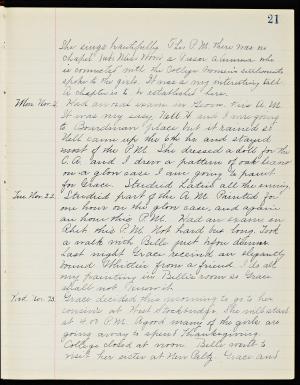 21
She sings beautifully. This P.M. there was no
chapel but Miss Wood a Vassar alumna who
is connected with the College Women's settlements
spoke to the girls. It was a very interesting talk
A chapter is to be established here.
Mon. Nov. 21. Had an oral exam in Geom. this A.M.
It was very easy. Nell H. and I were going
to Boardman Place but it rained so
Nell came up the 6th hr and stayed
most of the P.M. She dressed a doll for the
C.A. and I drew a pattern of oak leaves
on a glove case I am going to paint
for Grace. Studied Latin all the evening.
Tue. Nov. 22. Studied part of the A.M. Painted for
one hour on the glove case, and again
an hour this P.M. Had an exam in
Rhet this P.M. Not hard but long. Took
a walk with Belle just before dinner.
Last night Grace received an elegantly
bound Whittier from a friend. I do all
my painting in Belle's room so Grace
shall not know it.
Wed. Nov. 23. Grace decided this morning to go to her
cousins at West Stockbridge. She will start
at 4.07 P.M. A good many of the girls are
going away to spend Thanksgiving.
College closed at noon. Belle went to
visit her sister at New Paltz. Grace and